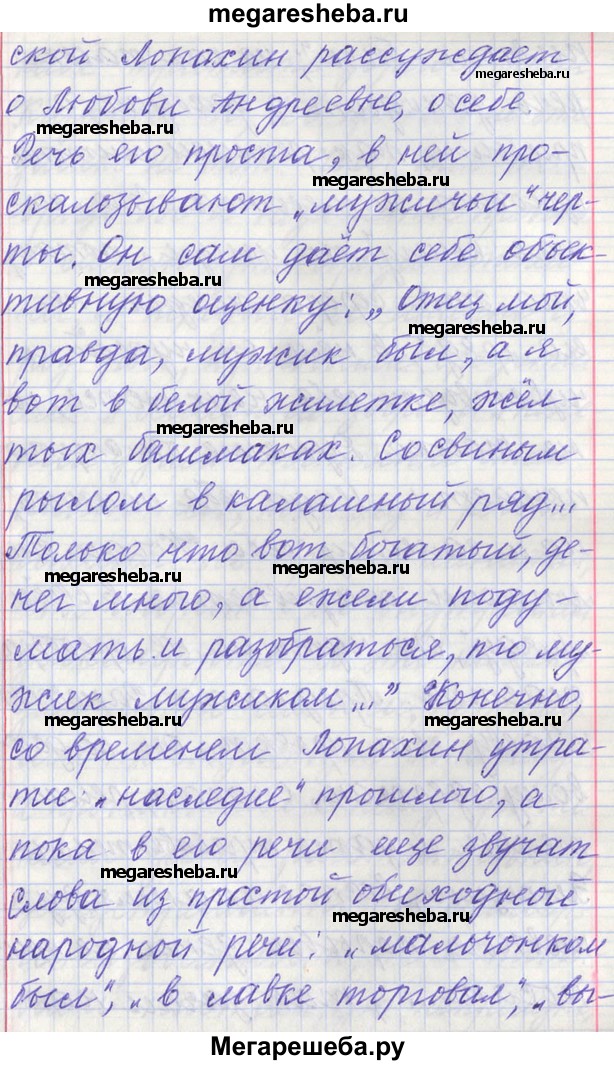 megaresheba.ru
ской Лопахин рассуждает
megaresheba.ru
о Любови Андреевне, о себе.
megaresheba.ru
Речь его проста, в ней про-
megaresheba.ru
скальзывают „мужичьи" чер-
ты. Он сам даёт себе объек-
megaresheba.ru
тивную оценку: „Отец мой,
megaresheba.ru
правда, мужик был, а я
вот в белой жилетке, жёл-
megaresheba.ru
тых башмаках. Со свиным
рылом в калашный ряд...
Только что вот богатый, де-
megaresheba.ru
megaresheba.ru
нег много, а ежели поду-
мать и разобраться, то му-
жик мужиком..." Конечно,
megaresheba.ru
megaresheba.ru
со временем Лопахин утра-
тит „наследие" прошлого, а
пока в его речи еще звучат
megaresheba.ru
слова из простой обиходной
megaresheba.ru
народной речи: „мальчонком
был", „в лавке торговал", „вы-
Мегарешеба.ру